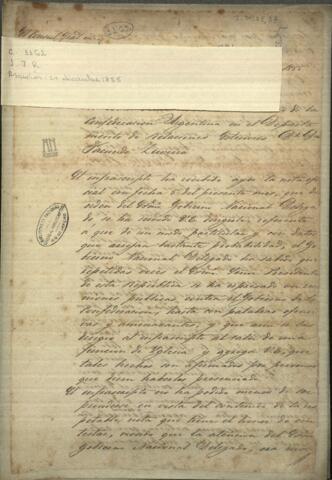 El Consul Gral
C. 3362
J. 7. R
Asunción: 24 diciembre 1855
1855
de la
Confederacion Argentina en el Departa-
mento de relaciones Esteriores Dr Dn
Facundo Zuviria
El infrascripto ha recibido ayer la nota ofi-
cial con fecha 5 del presente mes, que de
orden del Exmo Gobierno Nacional Delega-
do se ha servido V.E. dirigirle referente
a que de un modo particular y con datos
que arrojan bastante probabilidad, el Go-
bierno Nacional Delegado ha sabido que
repetidas veces el Exmo Señor Presidente
de esta República se ha expresado en reu-
niones públicas contra el Gobierno de la
Confederacion, hasta con palabras ofensi-
vas y amenazantes, y que aun se las
dirigio al infrascripto al salir de una
funcion de Iglesia y agrega V.E. que
tales hechos son afirmados por personas
que dicen haberlos presenciado.
El infrascripto no ha podido menos de sor-
prenderse en vista del contenido de la res-
petable nota que tiene el honor de con-
testar, viendo que la atencion del Exmo
Gobierno Nacional Delegado, sea mo-